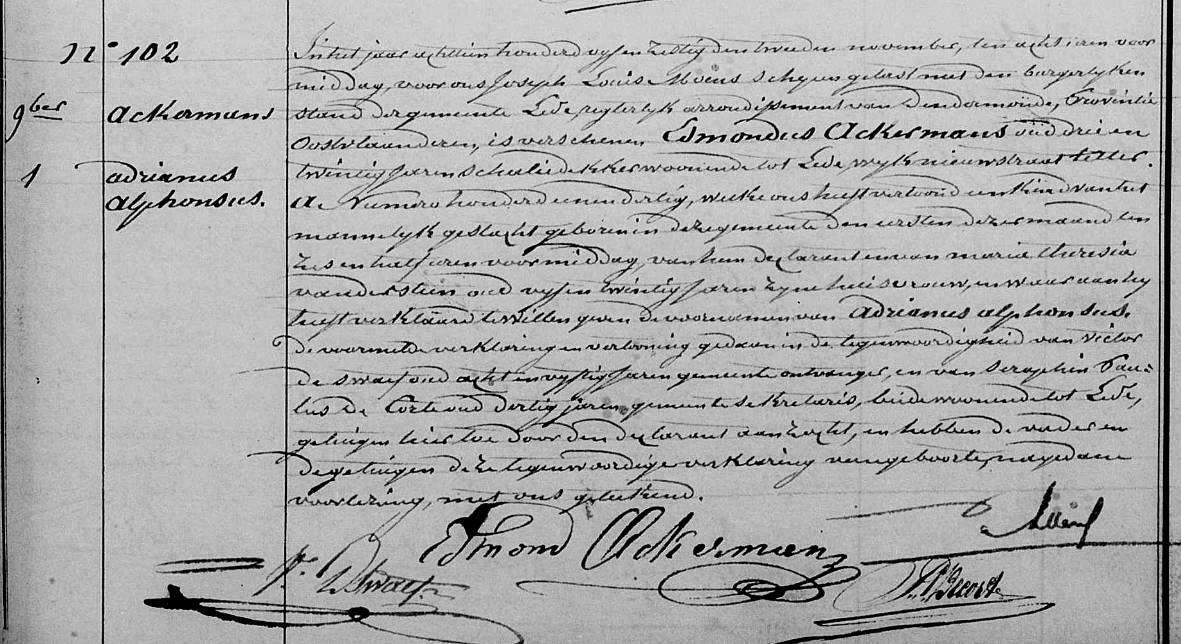 N° 102
9ber
1
Ackermans
adrianus
alphonsus.
In het jaar achttien honderd vyf en zestig den tweeden november, ten acht uren voor
middag, voor ons Joseph Louis schepen gelast met den burgerlyken
stand der gemeente Lede, regterlyk arrondissement van Dendermonde, Provintie
Oostvlaanderen, is verschenen Edmondus Ackermans oud drie en
twintig jaren schaliedekker woonende tot Lede, wyk nieuwstraat letter
A Numero honderd eenendertig, welke ons heeft vertoond een kind van het
mannelyk geslacht geboren in deze gemeente den eersten dezer maand ten
zes en half uren voormiddag, van hem declarant en van maria theresia
vandersteen oud vyf en twintig jaren zyne huisvrouw, en waaraan hy
heeft verklaard te willen geven de voornamen van Adrianus alphonsus.
de voormelde verklaring en vertooning gedaan in de tegenwoordigheid van victor
de swaef oud acht en vyftig jaren gemeente ontvanger, en van Seraphin Pau=
lus De Corte oud dertig jaren gemeente sekretaris, beide woonende tot Lede,
getuigen hier toe door den declarant aanzocht, en hebben de vader en
de getuigen deze tegenwoordige verklaring van geboorte, na gedane
voorlezing, met ons geteekend.
Edmond Ackermans
V. DSwaef